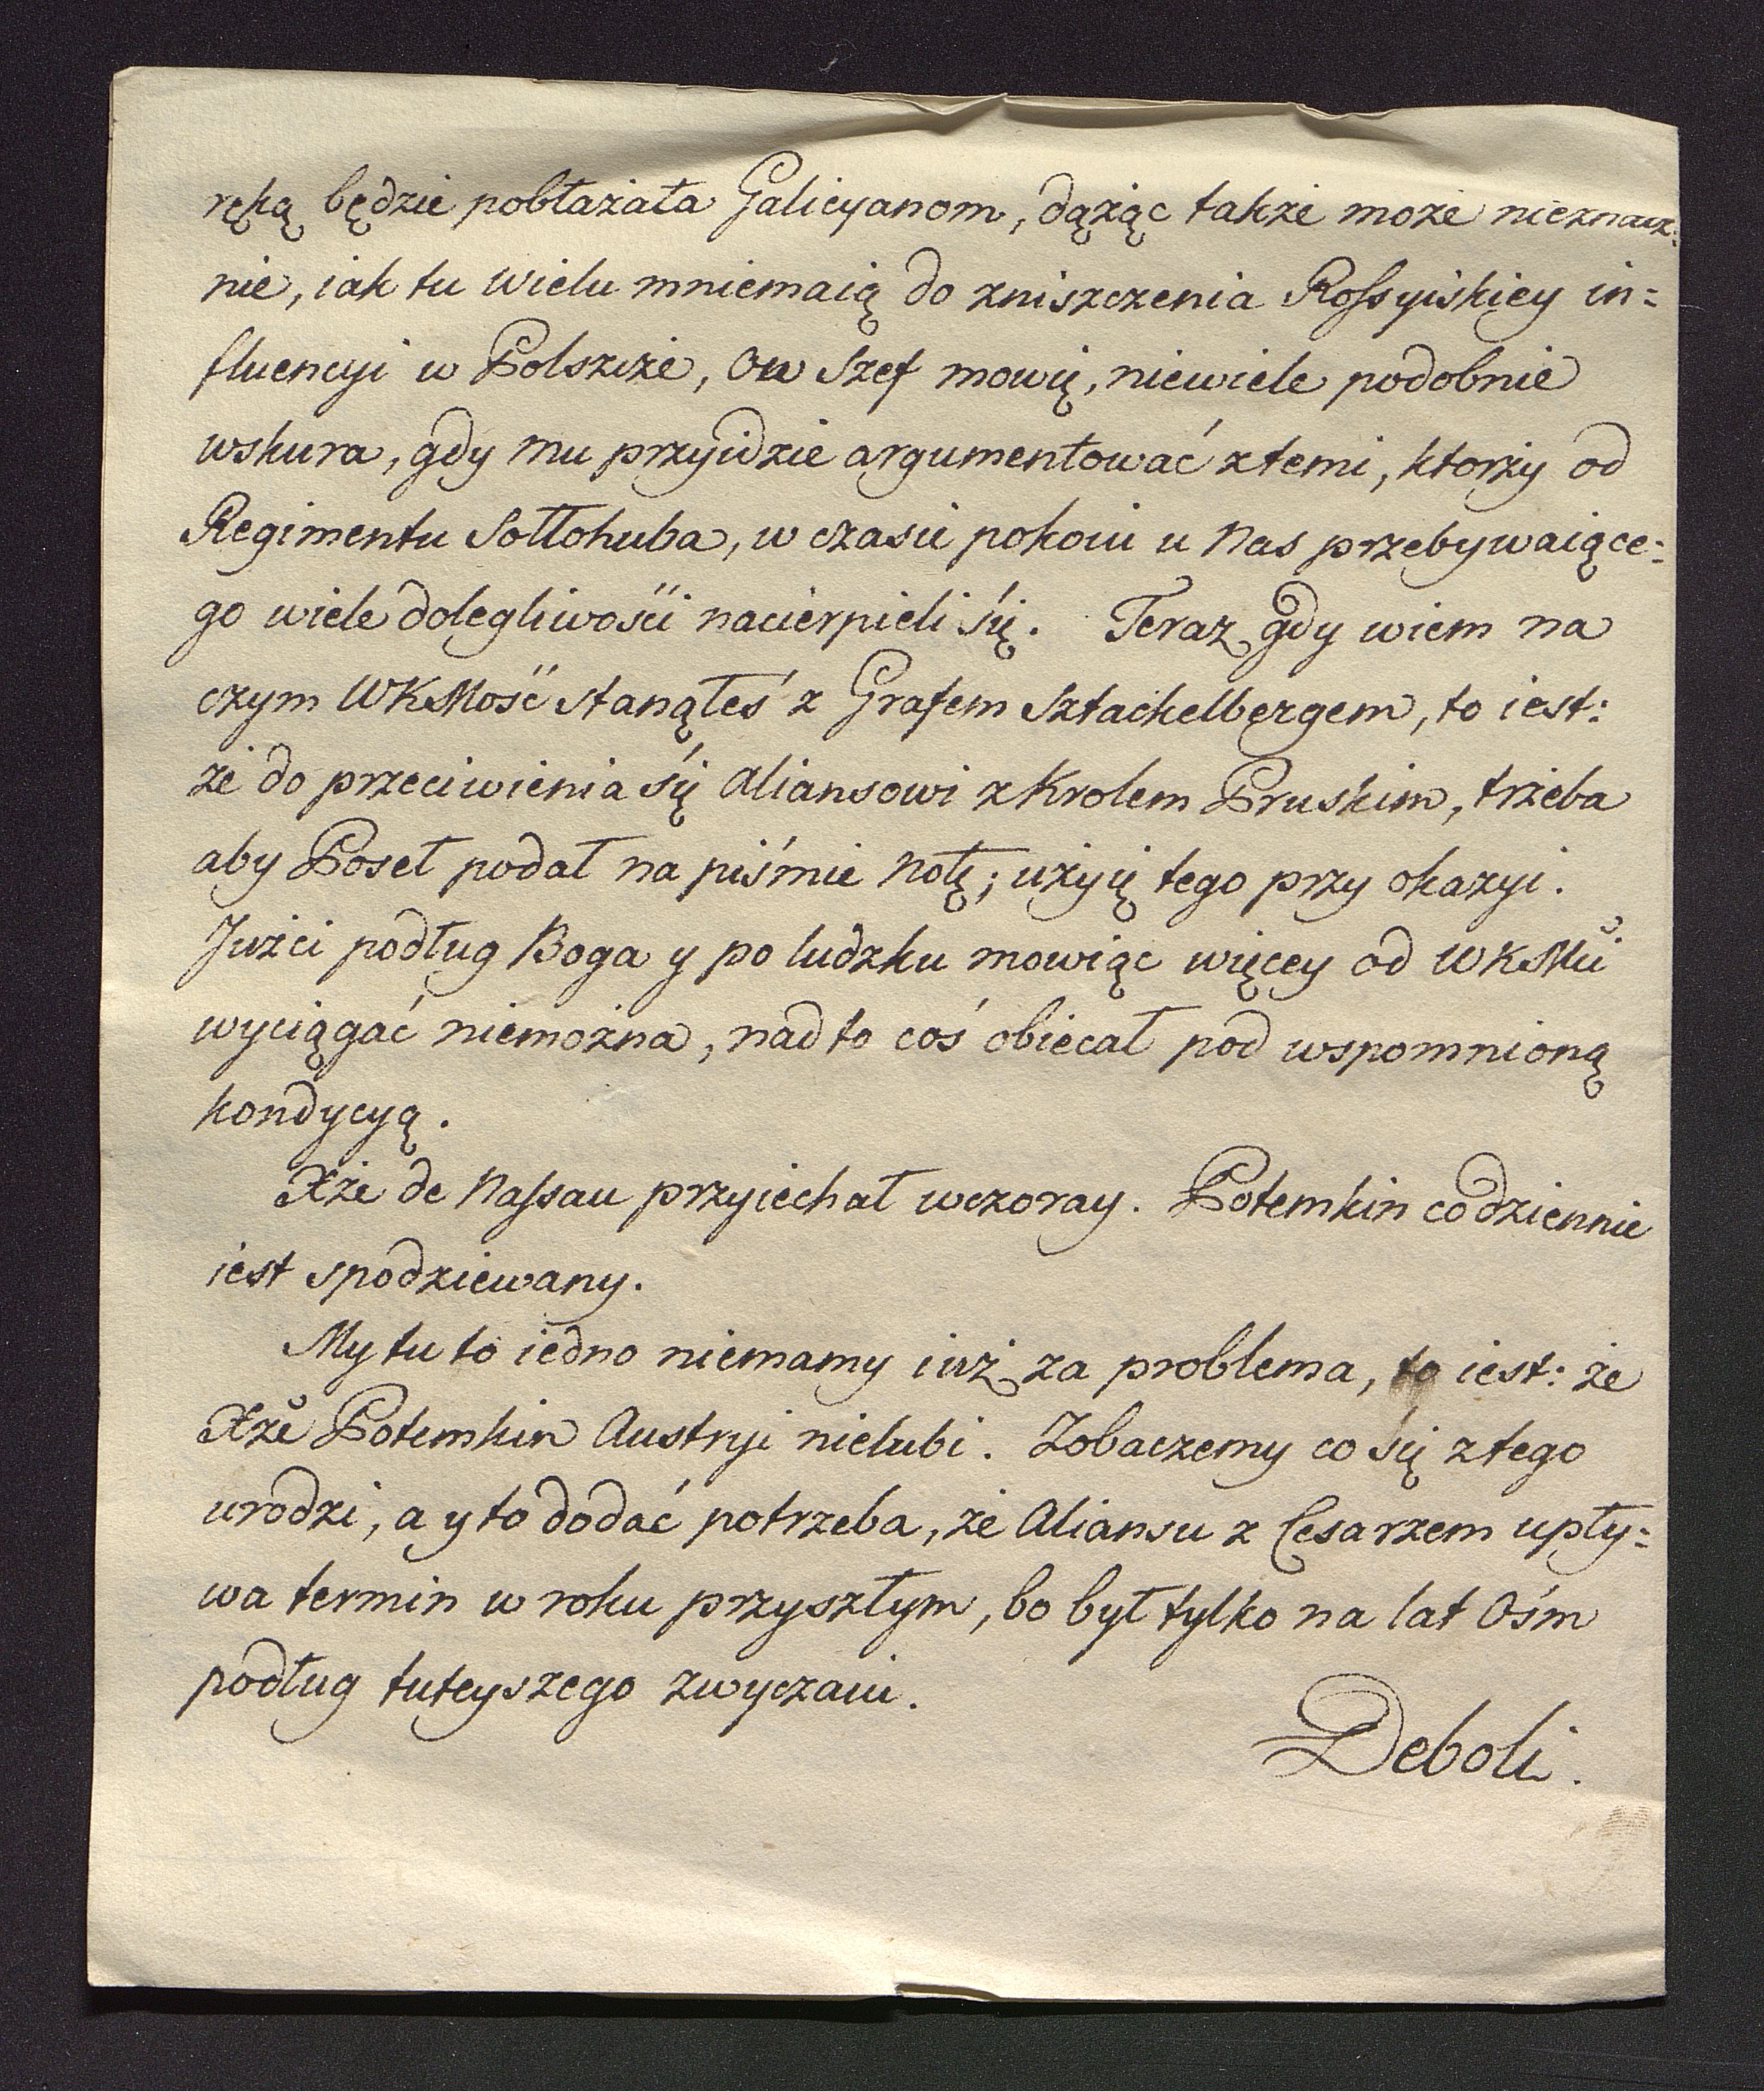 ręką będzie pobłażała Galicyanom, dążąc także może nieznacz:
nie, iak tu wielu mniemaią do zniszczenia Rossyiskięy in=
fluencyi w Polszcże, Ow Szef mowię, niewiele podobnie
wskura, gdy mu przyidzie argumentować z temi, ktorży od
Regimentu Sołłohuba, w czasie pokoiu u Nas przebywaiące=
go wiele dolegliwości nacierpieli się. Teraz gdy wiem na
czym WKMość stanąłeś z Grafem Sztackelbergem, to iest:
że do przeciwienia się Aliansowi z Krolem Pruskim, trżeba
aby Poseł podał na piśmie Notę; użyię tego przy okazyi.
Jużci podług Boga y po ludzku mowiąc więcey od WKMci
wyciągać niemożna, nad to coś obiecał pod wspomnioną
kondycyą.
Xże de Nassau przyiechał wczoray. Potemkin codziennie
iest spodziewany.
My tu to iedno niemamy iuż za problema, to iest: że
Xże Potemkin Austryi nielubi. Zobaczemy co się z tego
urodzi, a y to dodać potrzeba, że Aliansu z Cesarzem upły=
wa termin w roku przyszłym, bo był tylko na lat Ośm
podług tuteyszego zwyczaiu.
Deboli.